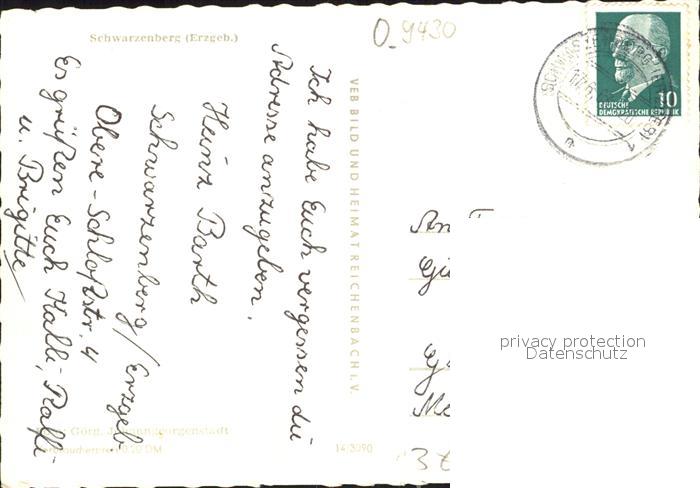 Schwarzenberg (Erzgeb.)
O-9430
Ich habe Euch vergessen die
Adresse anzugeben.
Heinz Barth
Schwarzenberg/Erzgeb.
Obere-Schloßstr. 4
Es grüßen Euch Kalli, Ralf,
u. Brigitte
Görg, Johanngeorgenstadt
0,20 DM
14/3090
VEB BILD UND HEIMAT REICHENBACH i. V.
DEUTSCHE
DEMOKRATISCHE REPUBLIK
10
An
privacy protection
Datenschutz